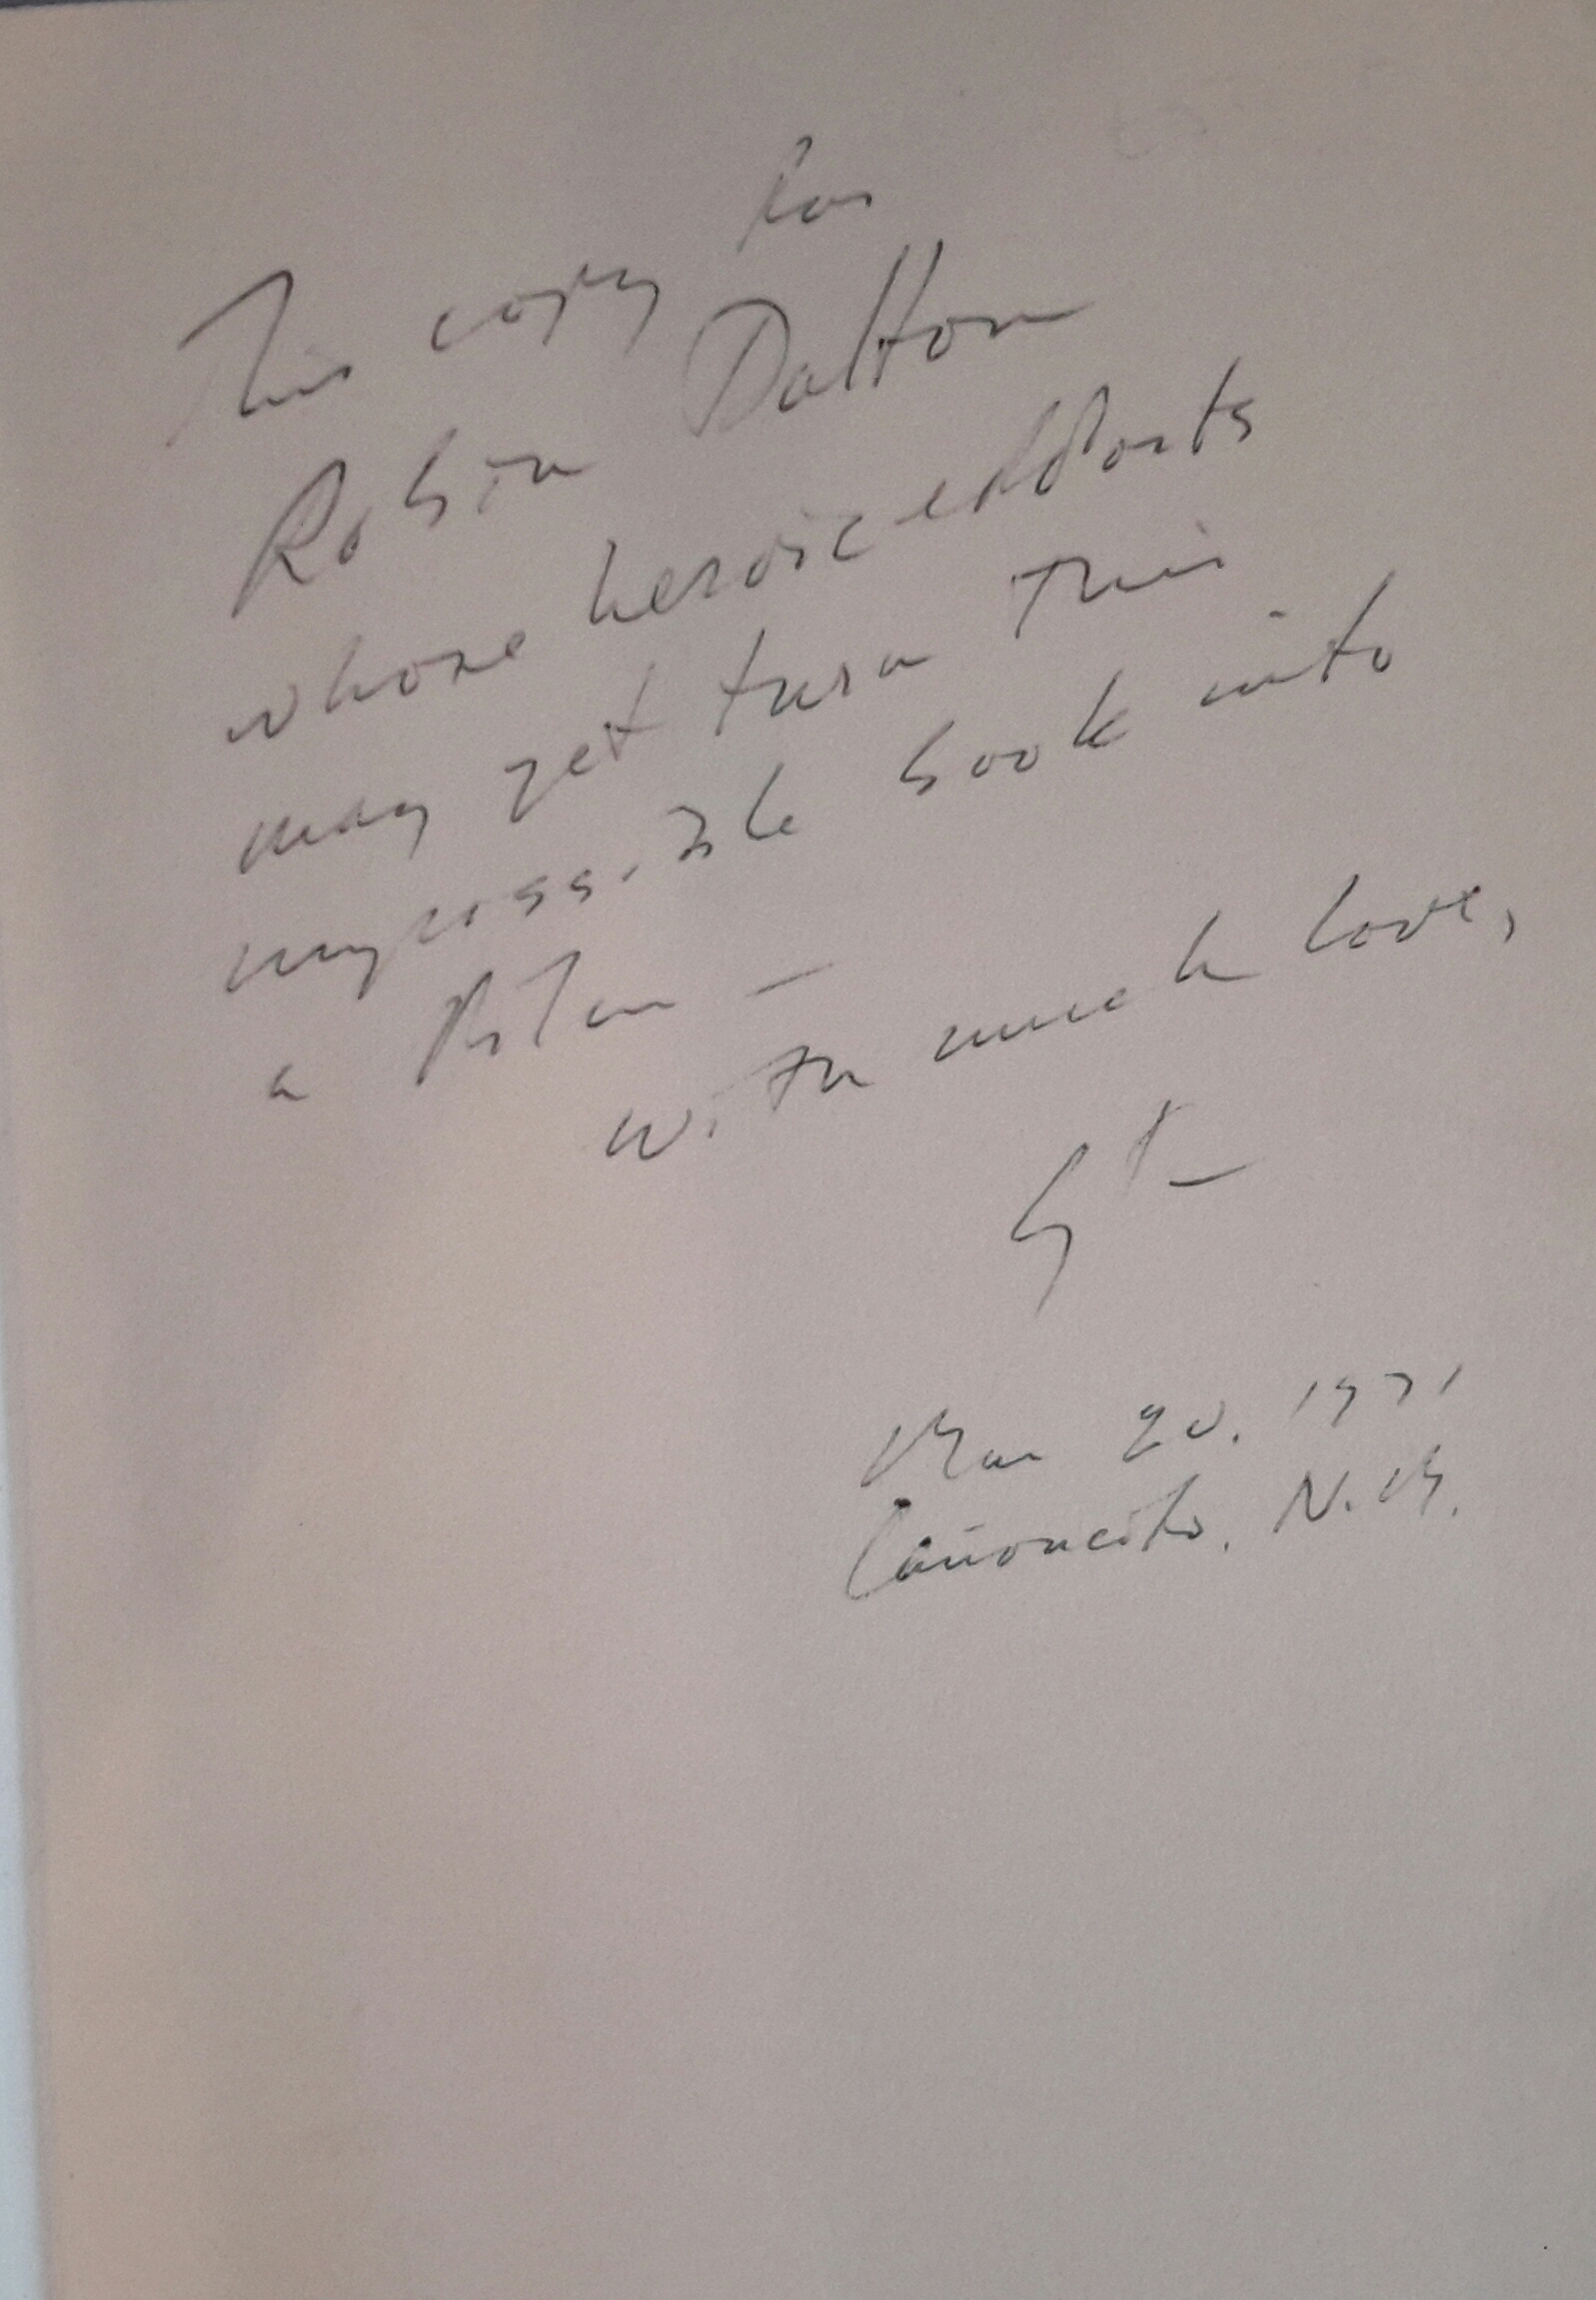 This copy for
Robin Dalton
whose heroic efforts
may yet turn this
impossible book into
a film —
with much love,
Mar 20. 1971
Cañoncito, N.M.